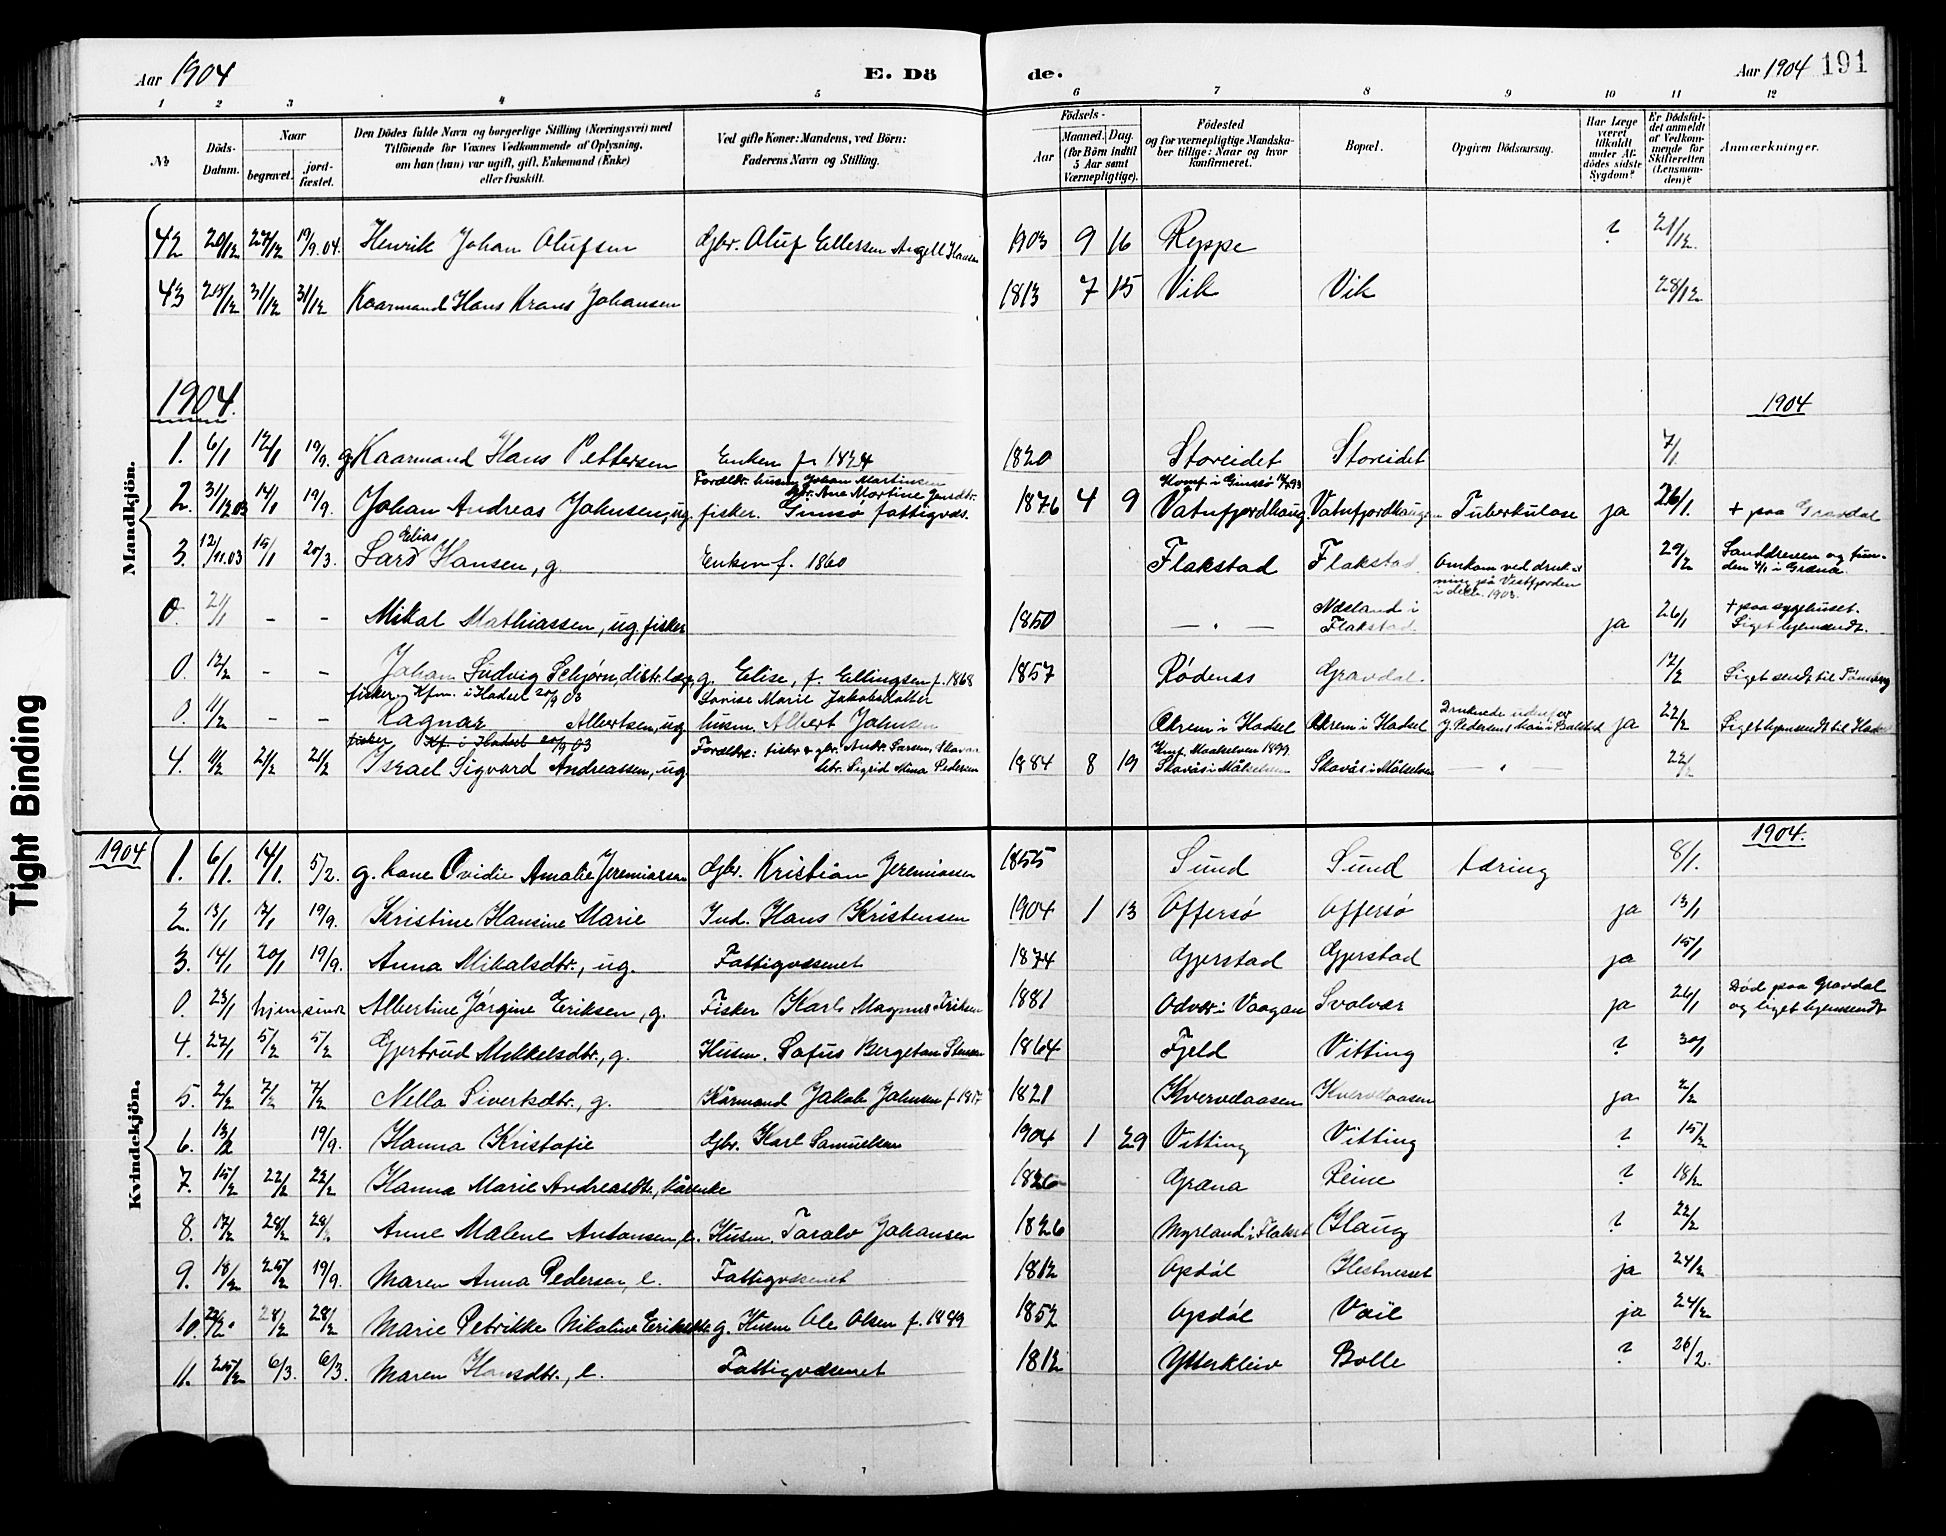 Aar 1904 E. Dö de. Aar 1904 191
1 2 3 4 5 6 7 8 9 10 11 12
No Döds-Datum. Naar begravet. jordfæstet. Den Dödes fulde Navn og borgerlige Stilling (Næringsvei) med Tilföiende for Voxnes Vedkommende af Oplysning, om han (hun) var ugift, gift, Enkemand (Enke) eller fraskilt. Ved gifte Koner: Mandens, ved Börn: Faderens Navn og Stilling. Födsels- Aar Maaned. Dag. (for Börn indtil 5 Aar samt Værnepligtige). Födested og for værnepligtige Mandskaber tillige: Naar og hvor konfirmeret. Bopæl. Opgiven Dödsaarsag. Har Læge været tilkaldt under Afdödes sidste Sygdom? Er Dödsfaldet anmeldt af Vedkommende for Skifteretten (Lensmanden)? Anmærkninger.
Mandkjön.
42 20/12 27/12 19/9.04. Henrik Johan Olufsen Gbr. Oluf Ellersen Angell Hansen 1903 9 16 Reppe ? 21/12.
43 25/12 31/12 31/12 Kaarmand Hans Krans Johansen 1813 7 15 Vik Vik 28/12
1904. 1904
1. 6/1 12/1 19/9. g. Kaarmand Hans Pettersen Enken f. 1824 1820 Storeidet Storeidet 7/1.
Foreldr. husm. Johan Martinsen Konf. i Gimsø
2. 31/12.03 14/1 19/9. Johan Andreas Johnsen, ug. fisker. Gimsø fattigvæs. 1876 4 9 Vatnfjordhaug. Vatnfjordhaugen Tuberkulose ja 26/1. + paa Gravdal
3. 12/11.03 15/1 20/3. Lars Elias Hansen, g. Enken f. 1860 Flakstad Flakstad Omkom ved drukning på Vestfjorden i decbr. 1903. 29/2 i Græna.
0. 21/1 - - Mikal Mathiassen, ug. fisker 1850 — " — Næsland i Flakstad. ja 26/1 + paa sygehuset. Liget hjemsendt.
0. 12/2 - - Johan Ludvig Schjørn, distr.læge, g. Elise, f. Ellingsen f. 1868 1857 Rødenæs Gravdal. 12/2 Liget sendt til
fisker, Kfm. i Hadsel 20/9 03 Lovise Marie Jakobsdatter
0. 11/2 - - Ragnar Albertsen, ug. husm. Albert Johnsen i Hadsel i Hadsel Druknede ja 22/2 Liget hjemsendt til Hadsel
fisker Kf. i Hadsel 20/9 03 Forældre: fisker & gbr. Andr. Larsen, Skavås Kmf. Maalselven 1899
4. 11/2 21/2 21/2 Israel Sigvard Andreassen, ug. Sigrid Mina Pedersen 1884 8 19 Skavås i Målselven Skavås i Målselven — " — 22/2
Kvindekjön.
1904 1904.
1. 6/1. 14/1. 5/2. g. kone Ovidie Amalie Jeremiassen Gbr. Kristian Jeremiassen 1855 Sund Sund tæring 8/1.
2. 13/1 17/1 19/9. Kristine Hansine Marie Ind. Hans Kristensen 1904 1 13 Offersø Offersø ja 13/1
3. 14/1 20/1 19/9. Anna Mikalsdtr., ug. Fattigvæsenet 1874 Gjerstad Gjerstad ja 15/1
0. 23/1 hjemsendt Albertine Jørgine Eriksen, g. Fisker Karl Magnus Eriksen 1881 Odvær i Vaagan Svolvær ja 26/1 Død paa Gravdal og liget hjemsendt
4. 27/1 5/2 5/2 Gjertrud Mikkelsdtr., g. Husm. Sofus Bergetan Stensen 1864 Fjeld Vitting ? 30/1
5. 2/2 7/2 7/2 Nella Sivertsdtr., g. Kårmand Jakob Johnsen f. 1817 1821 Kvervelaasen Kvervelaasen ja 2/2
6. 13/2 19/9. Hanna Kristofie Gbr. Karl Samuelsen 1904 1 29 Vitting Vitting ? 15/2
7. 15/2 22/2 22/2 Hanna Marie Andreasdtr., kårenke 1826 Græna Leine ? 18/2
8. 17/2 28/2 28/2 Anne Malene Antonsen, e. Husm. Taralv Johansen 1826 Myrland i Flakst. Haug ? 22/2
9. 18/2 25/2 19/9. Maren Anna Pedersen, e. Fattigvæsenet 1812 Opdøl Hestnesset ja 24/2
10. 22/2. 28/2 28/2 Marie Petrikke Nikoline Eriksdtr. g. Husm Ole Olsen f. 1849 1852 Opdøl Voie ja 24/2
11. 25/2 6/3. 6/3. Maren Hansdtr., e. Fattigvæsenet 1812 Ytterkleiv Bolle ? 26/2.
Tight Binding